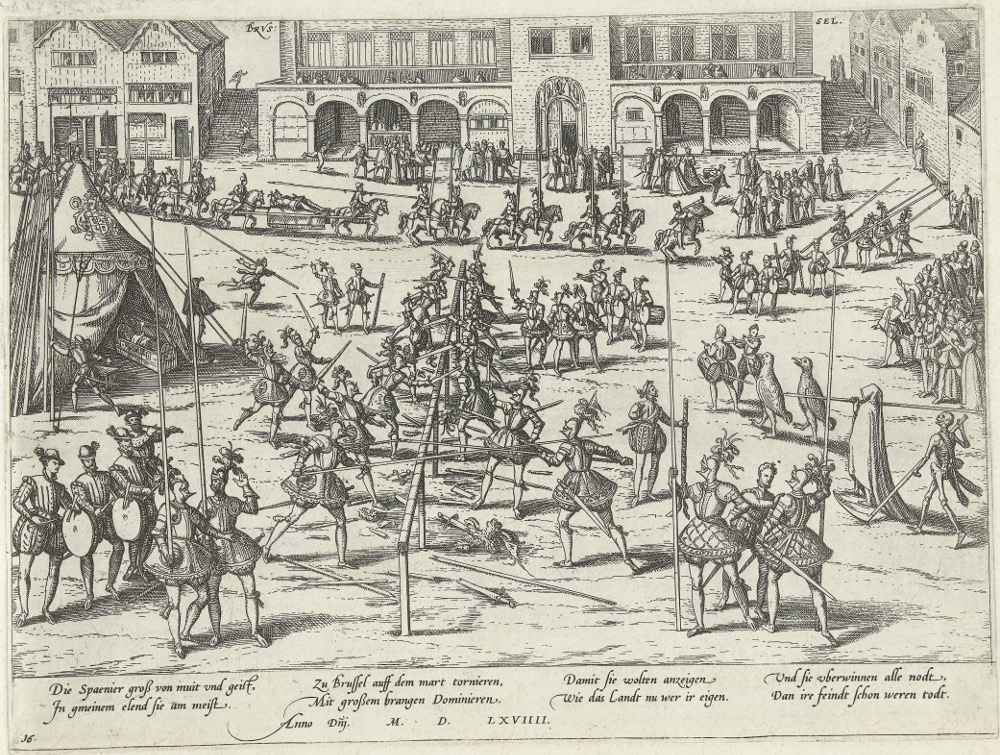 BRVS
SEL.
Die Spaenier groß von muit vnd geist,
In gmeinem elend sie am meist.
Zu Brussel auff dem mart tornieren,
Mit großem brangen Dominieren.
Damit sie wolten anzeigen
Wie das Landt nu wer ir eigen.
Vnd sie vberwinnen alle nodt,
Dan ire feindt schon weren todt.
Anno Dñi. M. D. LXVIIII.
16.